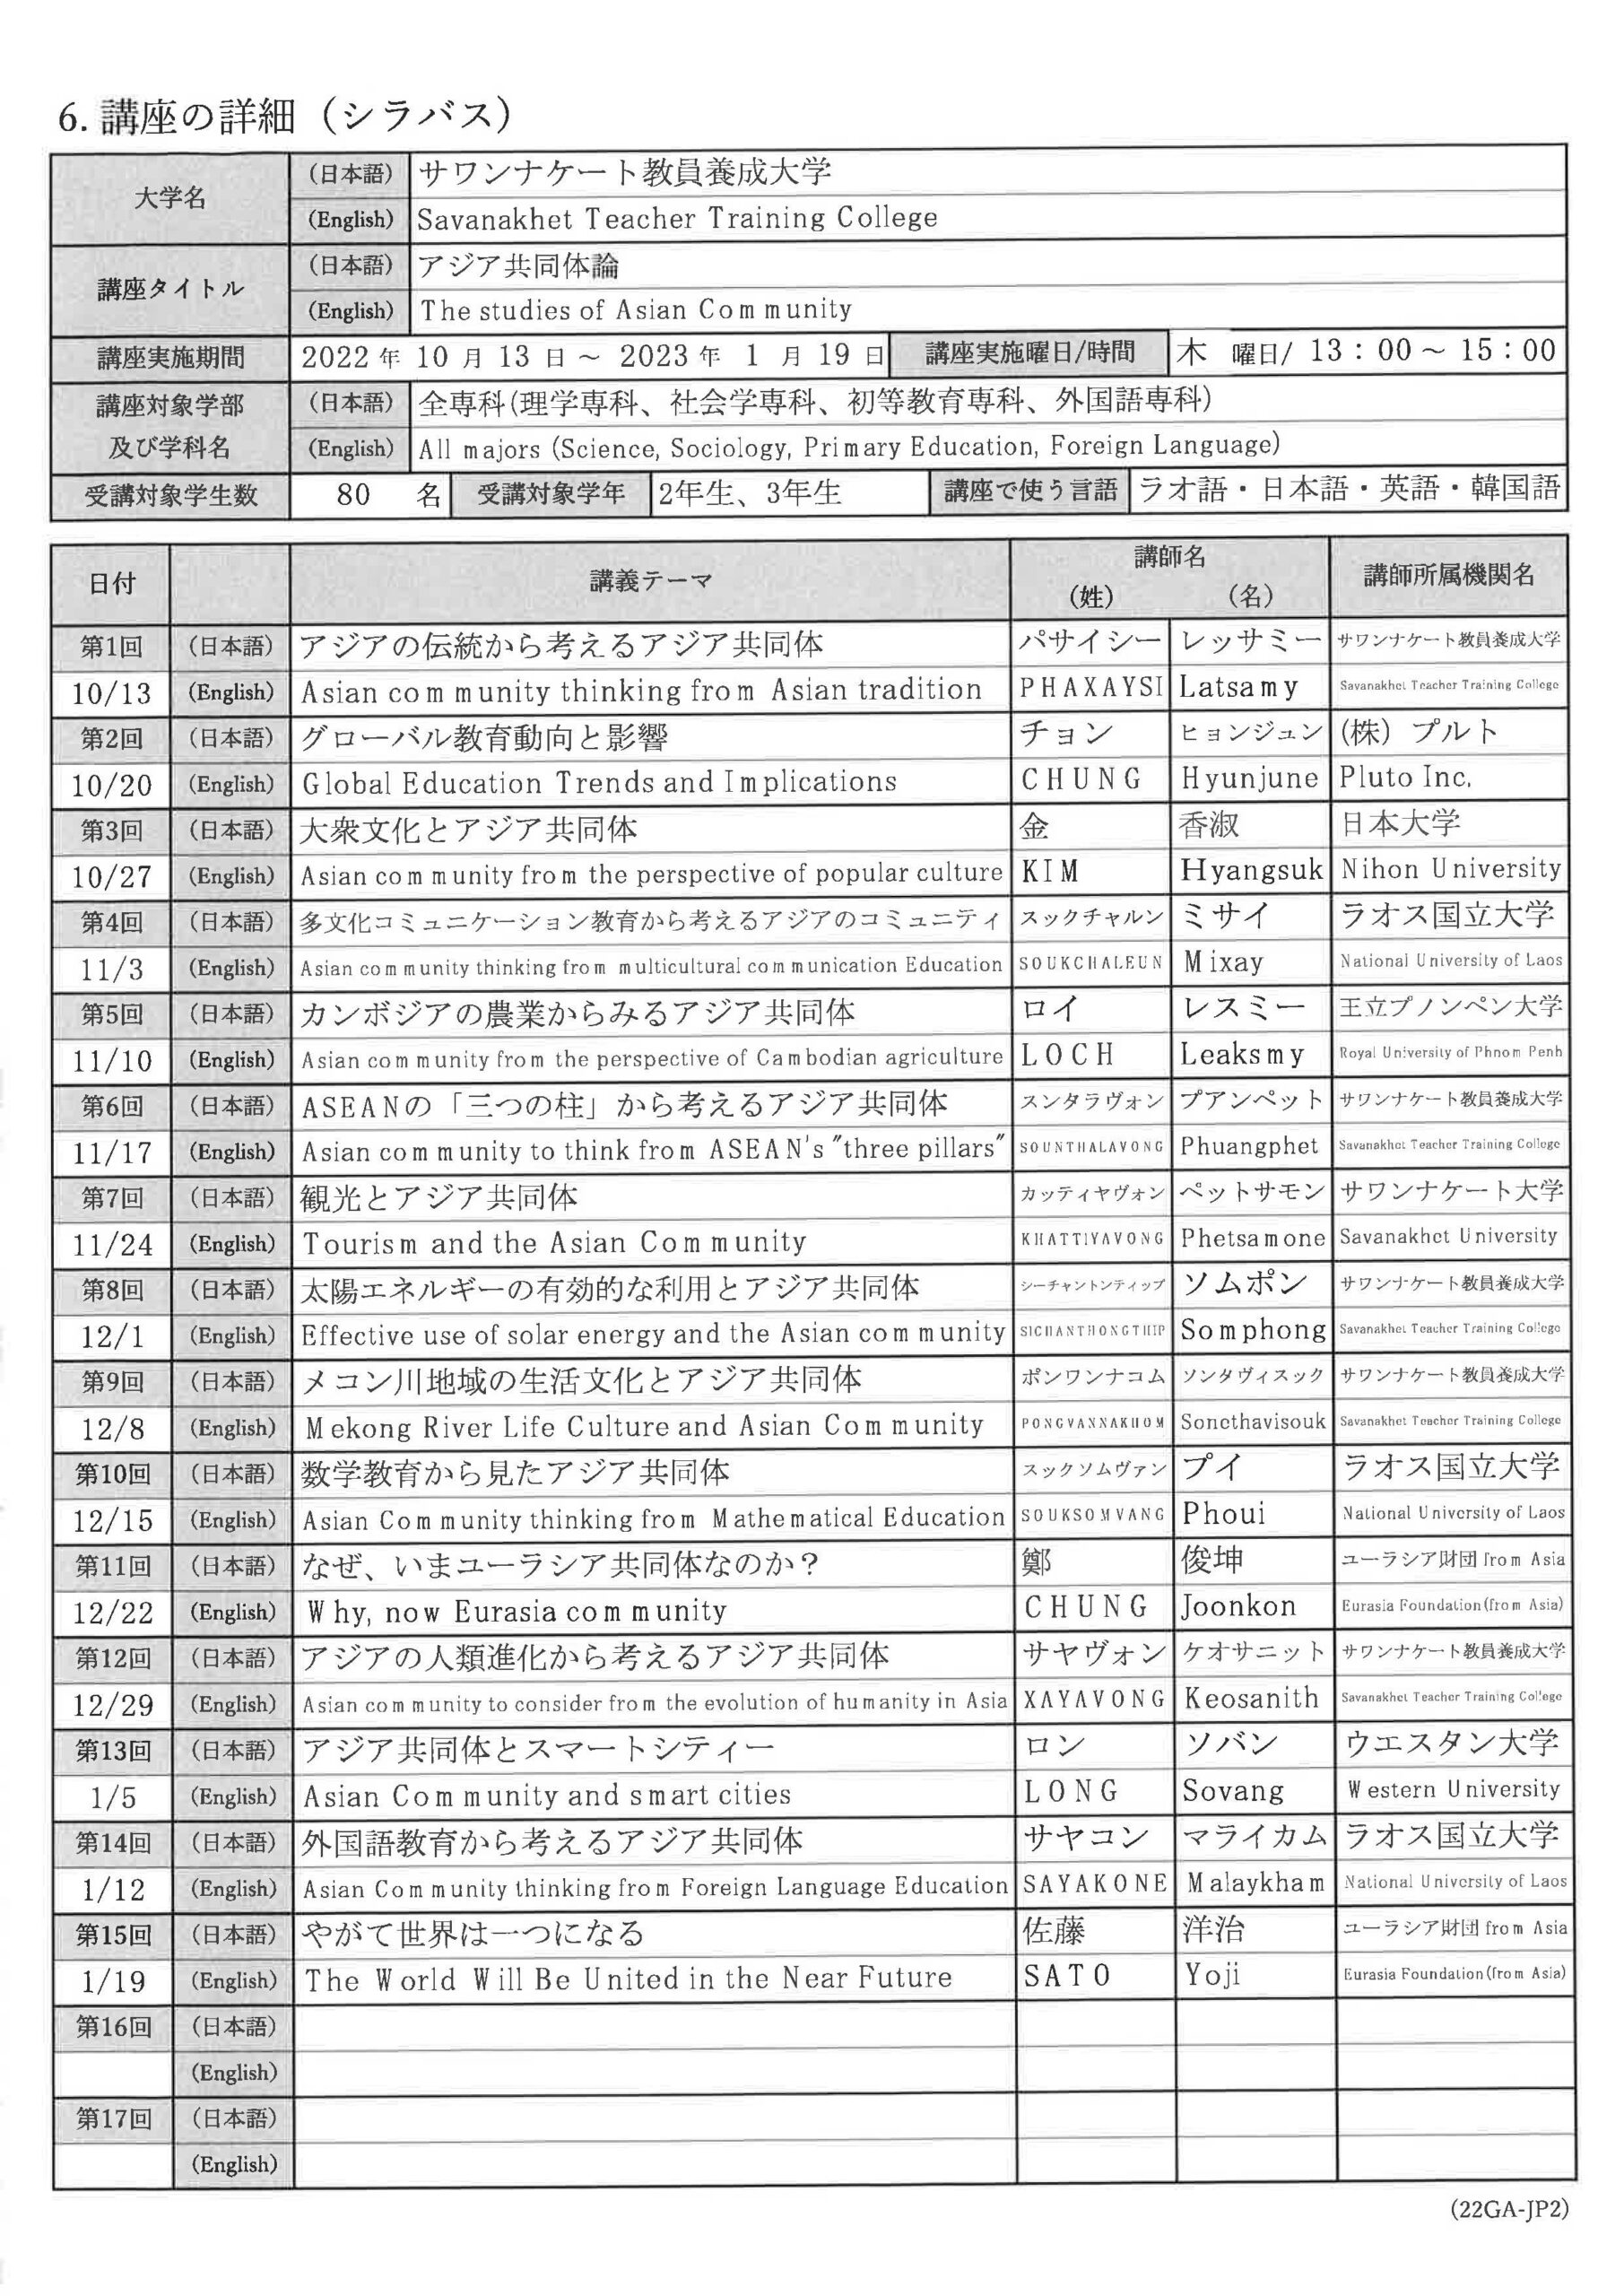 6. 講座の詳細（シラバス）
大学名 （日本語） サワンナケート教員養成大学
(English) Savanakhet Teacher Training College
講座タイトル （日本語） アジア共同体論
(English) The studies of Asian Community
講座実施期間 2022 年 10 月 13 日 ～ 2023 年 1 月 19 日 講座実施曜日/時間 木 曜日/ 13：00～ 15：00
講座対象学部 （日本語） 全専科(理学専科、社会学専科、初等教育専科、外国語専科)
及び学科名 (English) All majors (Science, Sociology, Primary Education, Foreign Language)
受講対象学生数 80 名 受講対象学年 2年生、3年生 講座で使う言語 ラオ語・日本語・英語・韓国語
日付 講義テーマ 講師名 （姓） （名） 講師所属機関名
第1回 （日本語） アジアの伝統から考えるアジア共同体 パサイシー レッサミー サワンナケート教員養成大学
10/13 (English) Asian community thinking from Asian tradition PHAXAYSI Latsamy Savanakhet Teacher Training College
第2回 （日本語） グローバル教育動向と影響 チョン ヒョンジュン (株）プルト
10/20 (English) Global Education Trends and Implications CHUNG Hyunjune Pluto Inc.
第3回 （日本語） 大衆文化とアジア共同体 金 香淑 日本大学
10/27 (English) Asian community from the perspective of popular culture KIM Hyangsuk Nihon University
第4回 （日本語） 多文化コミュニケーション教育から考えるアジアのコミュニティ スックチャルン ミサイ ラオス国立大学
11/3 (English) Asian community thinking from multicultural communication Education SOUKCHALEUN Mixay National University of Laos
第5回 （日本語） カンボジアの農業からみるアジア共同体 ロイ レスミー 王立プノンペン大学
11/10 (English) Asian community from the perspective of Cambodian agriculture LOCH Leaksmy Royal University of Phnom Penh
第6回 （日本語） ASEANの「三つの柱」から考えるアジア共同体 スンタラヴォン プアンペット サワンナケート教員養成大学
11/17 (English) Asian community to think from ASEAN's "three pillars" SOUNTHALAVONG Phuangphet Savanakhet Teacher Training College
第7回 （日本語） 観光とアジア共同体 カッティヤヴォン ペットサモン サワンナケート大学
11/24 (English) Tourism and the Asian Community KHATTIYAVONG Phetsamone Savanakhet University
第8回 （日本語） 太陽エネルギーの有効的な利用とアジア共同体 シーチャントンティップ ソムポン サワンナケート教員養成大学
12/1 (English) Effective use of solar energy and the Asian community SICHANTHONGTHIP Somphong Savanakhet Teacher Training College
第9回 （日本語） メコン川地域の生活文化とアジア共同体 ポンワンナコム ソンダヴィスック サワンナケート教員養成大学
12/8 (English) Mekong River Life Culture and Asian Community PONGVANNAKHOM Sonethavisouk Savanakhet Teacher Training College
第10回 （日本語） 数学教育から見たアジア共同体 スックソムヴァン プイ ラオス国立大学
12/15 (English) Asian Community thinking from Mathematical Education SOUKSOMVANG Phoui National University of Laos
第11回 （日本語） なぜ、いまユーラシア共同体なのか？ 鄭 俊坤 ユーラシア財団 from Asia
12/22 (English) Why, now Eurasia community CHUNG Joonkon Eurasia Foundation(from Asia)
第12回 （日本語） アジアの人類進化から考えるアジア共同体 サヤヴォン ケオサニット サワンナケート教員養成大学
12/29 (English) Asian community to consider from the evolution of humanity in Asia XAYAVONG Keosanith Savanakhet Teacher Training College
第13回 （日本語） アジア共同体とスマートシティー ロン ソバン ウエスタン大学
1/5 (English) Asian Community and smart cities LONG Sovang Western University
第14回 （日本語） 外国語教育から考えるアジア共同体 サヤコン マライカム ラオス国立大学
1/12 (English) Asian Community thinking from Foreign Language Education SAYAKONE Malaykham National University of Laos
第15回 （日本語） やがて世界は一つになる 佐藤 洋治 ユーラシア財団 from Asia
1/19 (English) The World Will Be United in the Near Future SATO Yoji Eurasia Foundation(from Asia)
第16回 （日本語）
(English)
第17回 （日本語）
(English)
(22GA-JP2)